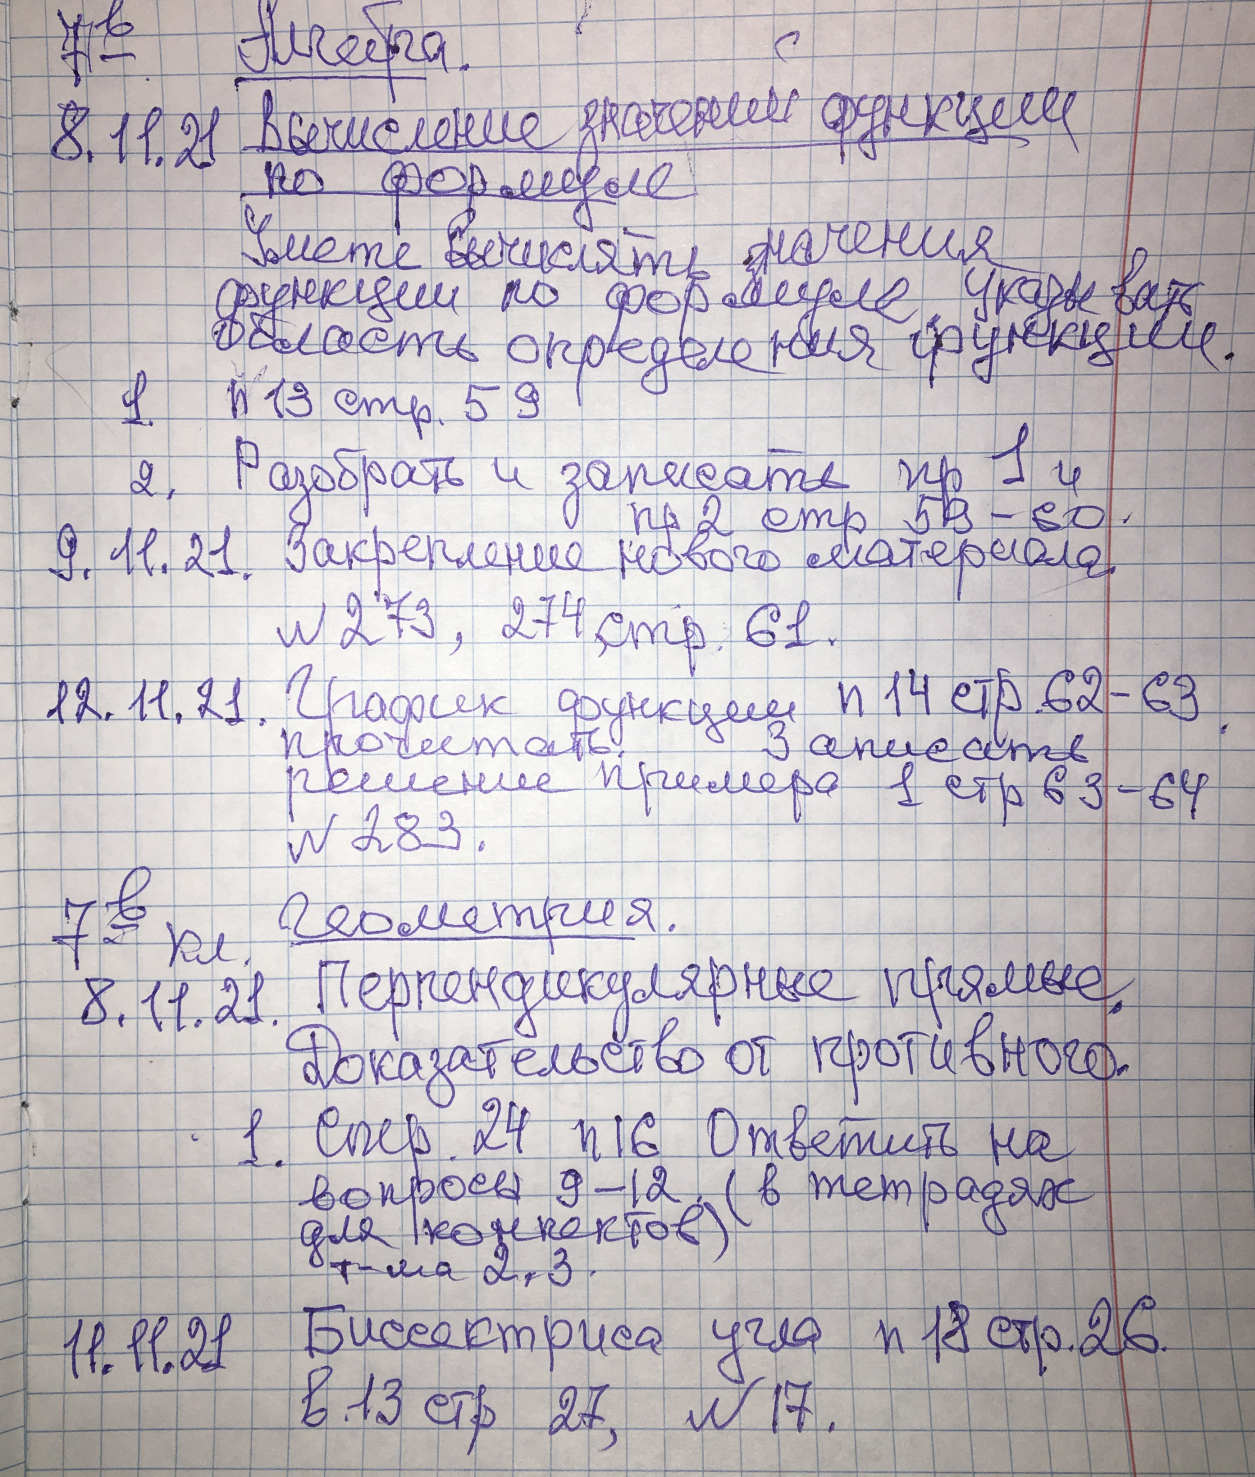 7в Алгебра.
8.11.21 Вычисление значений функции
по формуле
Уметь вычислять значения
функции по формуле, указывать
область определения функции.
1. п 13 стр. 59
2. Разобрать и записать пр 1 и
пр 2 стр 59-60.
9.11.21. Закрепление нового материала.
№ 273, 274, стр. 61.
12.11.21. График функции п 14 стр. 62-63.
прочитать. Записать
решение примера 1 стр 63-64
№ 283.
7в кл. Геометрия.
8.11.21. Перпендикулярные прямые.
Доказательство от противного.
1. Стр. 24 п 16 Ответить на
вопросы 9-12. (в тетрадях
для конпектов)
т-ма 2.3.
11.11.21 Биссектриса угла п 18 стр. 26.
в.13 стр 27, № 17.